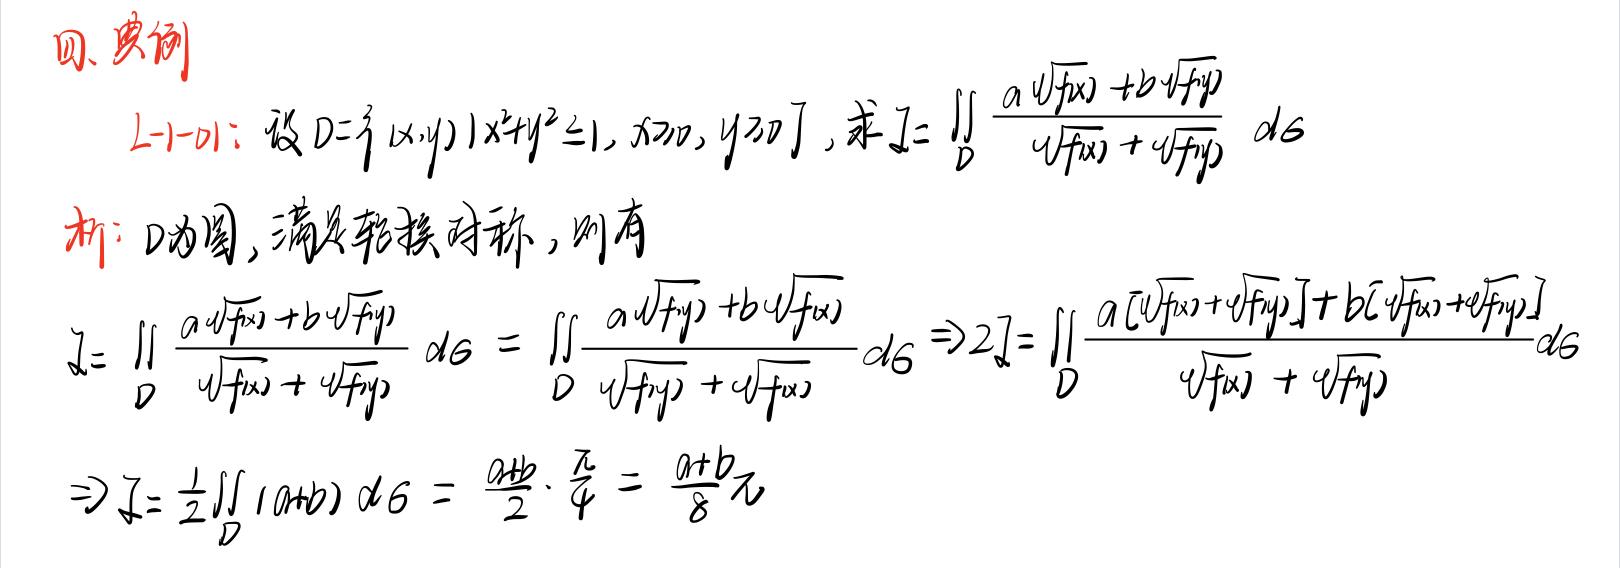 四、典例
L-1-01: 设 D={(x,y)|x²+y²≤1, x≥0, y≥0}, 求 I=∬_D (a√f(x)+b√f(y))/(√f(x)+√f(y)) dσ
析: D为圆, 满足轮换对称, 则有
I=∬_D (a√f(x)+b√f(y))/(√f(x)+√f(y)) dσ = ∬_D (a√f(y)+b√f(x))/(√f(y)+√f(x)) dσ ⇒ 2I=∬_D (a[√f(x)+√f(y)]+b[√f(x)+√f(y)])/(√f(x)+√f(y)) dσ
⇒ I=1/2∬_D (a+b) dσ = (a+b)/2 · π/4 = (a+b)/8 π